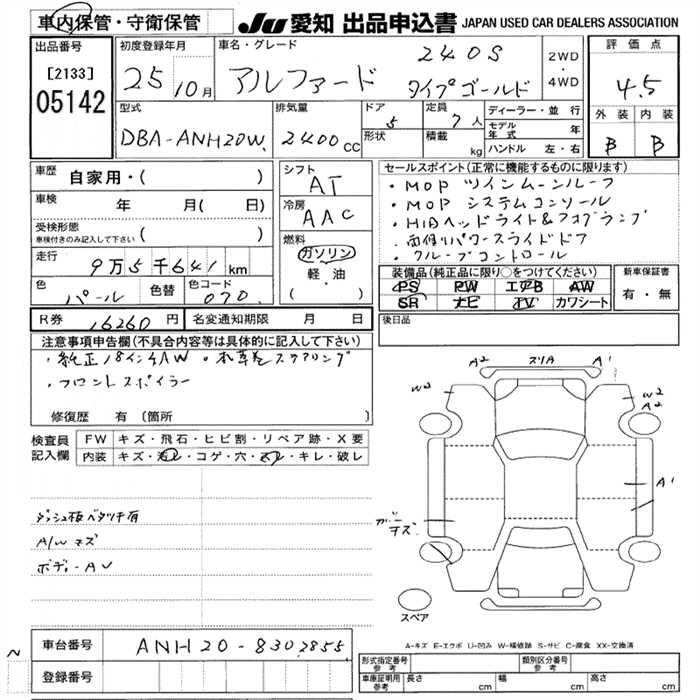 車内保管・守衛保管
JU 愛知 出品申込書 JAPAN USED CAR DEALERS ASSOCIATION
出品番号
[2133]
05142
初度登録年月
25年10月
車名・グレード
アルファード
240S
タイプゴールド
2WD
・
4WD
評価点
4.5
外装 内装
B B
型式
DBA-ANH20W
排気量
2400 CC
ドア
5
形状
定員
7人
積載
kg
ディーラー・並 行
モデル年式 年
ハンドル 左・右
車歴
自家用・( )
車検 年 月( 日)
受検形態
車検付きのみ記入して下さい ( )
走行
9万5千641km
色
パール
色替
色コード
070
シフト
AT
冷房
AAC
燃料
ガソリン
軽 油
( )
セールスポイント(正常に機能するものに限ります)
・MOP ツインムーンルーフ
・MOP システムコンソール
・HIDヘッドライト&フォグランプ
・両側パワースライドドア
・クルーズコントロール
装備品(純正品に限り○をつけてください)
PS PW エアB AW
SR ナビ TV カワシート
新車保証書
有・無
R券 16260円
名変通知期限 月 日
後日品
注意事項申告欄(不具合内容等は具体的に記入して下さい)
・純正18インチAW ・本革巻ステアリング
・フロントスポイラー
修復歴 有 〔箇所 〕
検査員記入欄
FW キズ・飛石・ヒビ割・リペア跡・X要
内装 キズ・汚レ・コゲ・穴・スレ・キレ・破レ
ダッシュ板ベタツキ有
A/W キズ
ボディーAU
A2 スリA A1
W2
W2
A2
A1
ガリキズ
スペア
A-キズ E-エクボ U-凹み W-補修跡 S-サビ C-腐食 XX-交換済
車台番号 ANH20-8302855
登録番号
形式指定番号
参考
類別区分番号
参考
車庫証明用
参考
長さ cm 幅 cm 高さ cm